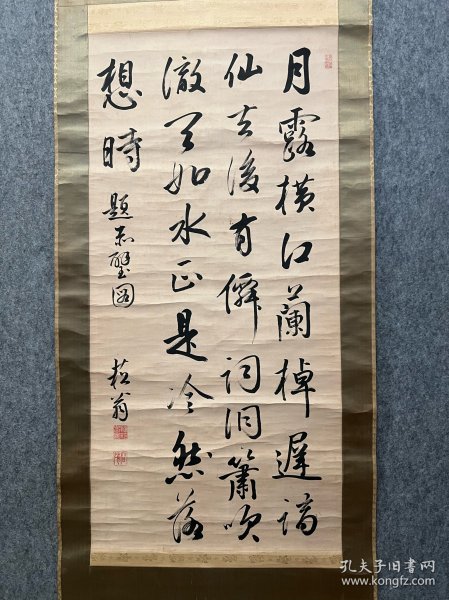 月露橫江蘭棹遲謫
仙去後有僻詞洞簫吹
澈天如水正是冷然落
想時
題赤壁圖
菘翁
孔夫子旧书网
www.kongfz.com